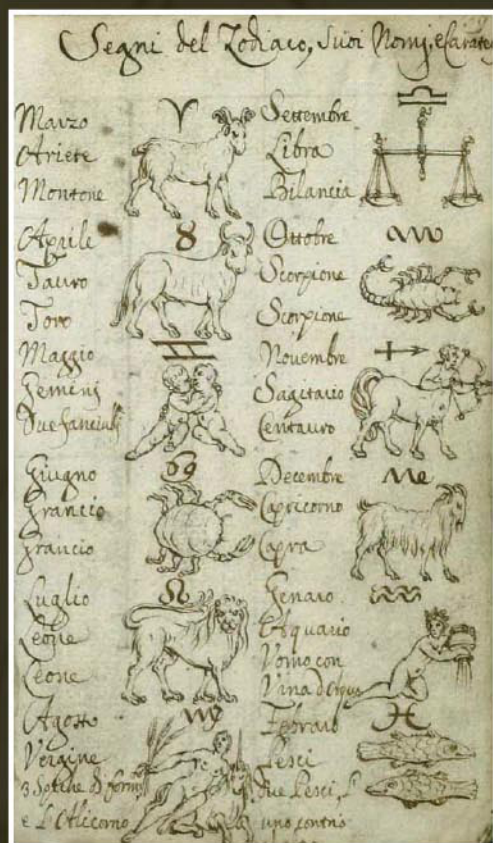 Segni del Zodiaco, suoi Nomi, e Carate
Marzo
Ariete
Montone
Aprile
Tauro
Toro
Maggio
Gemini
Due fanciulli
Giugno
Grancio
Grancio
Luglio
Leone
Leone
Agosto
Vergine
3 Spiche di
e L'Alicorno
Settembre
Libra
Bilancia
Ottobre
Scorpione
Scorpione
Novembre
Sagitario
Centauro
Decembre
Capricorno
Capra
Genaro
Aquario
Vomo con
Vrna d'Aqua
Febraio
Pesci
due Pesci, l'
uno contro